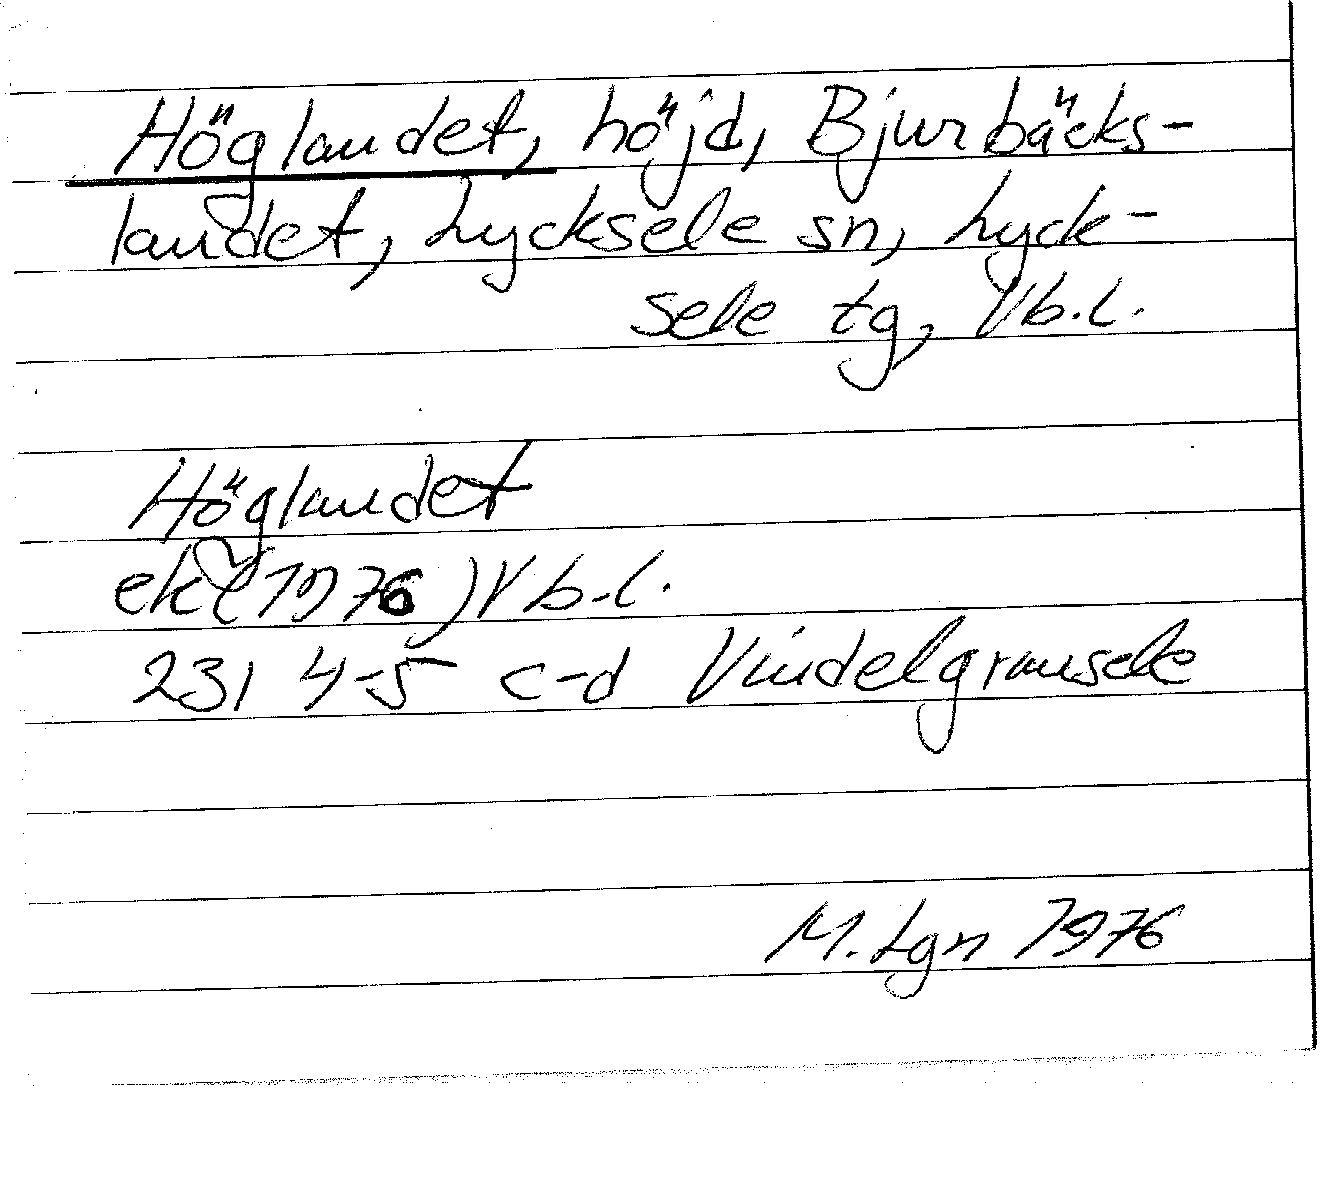 Höglandet, höjd, Bjurbäcks-
landet, Lycksele sn, Lyck-
sele tg, Vb.l.
Höglandet
ek (1976) Vb.l.
23I 4-5 c-d Vindelgransele
M. Lgn 1976